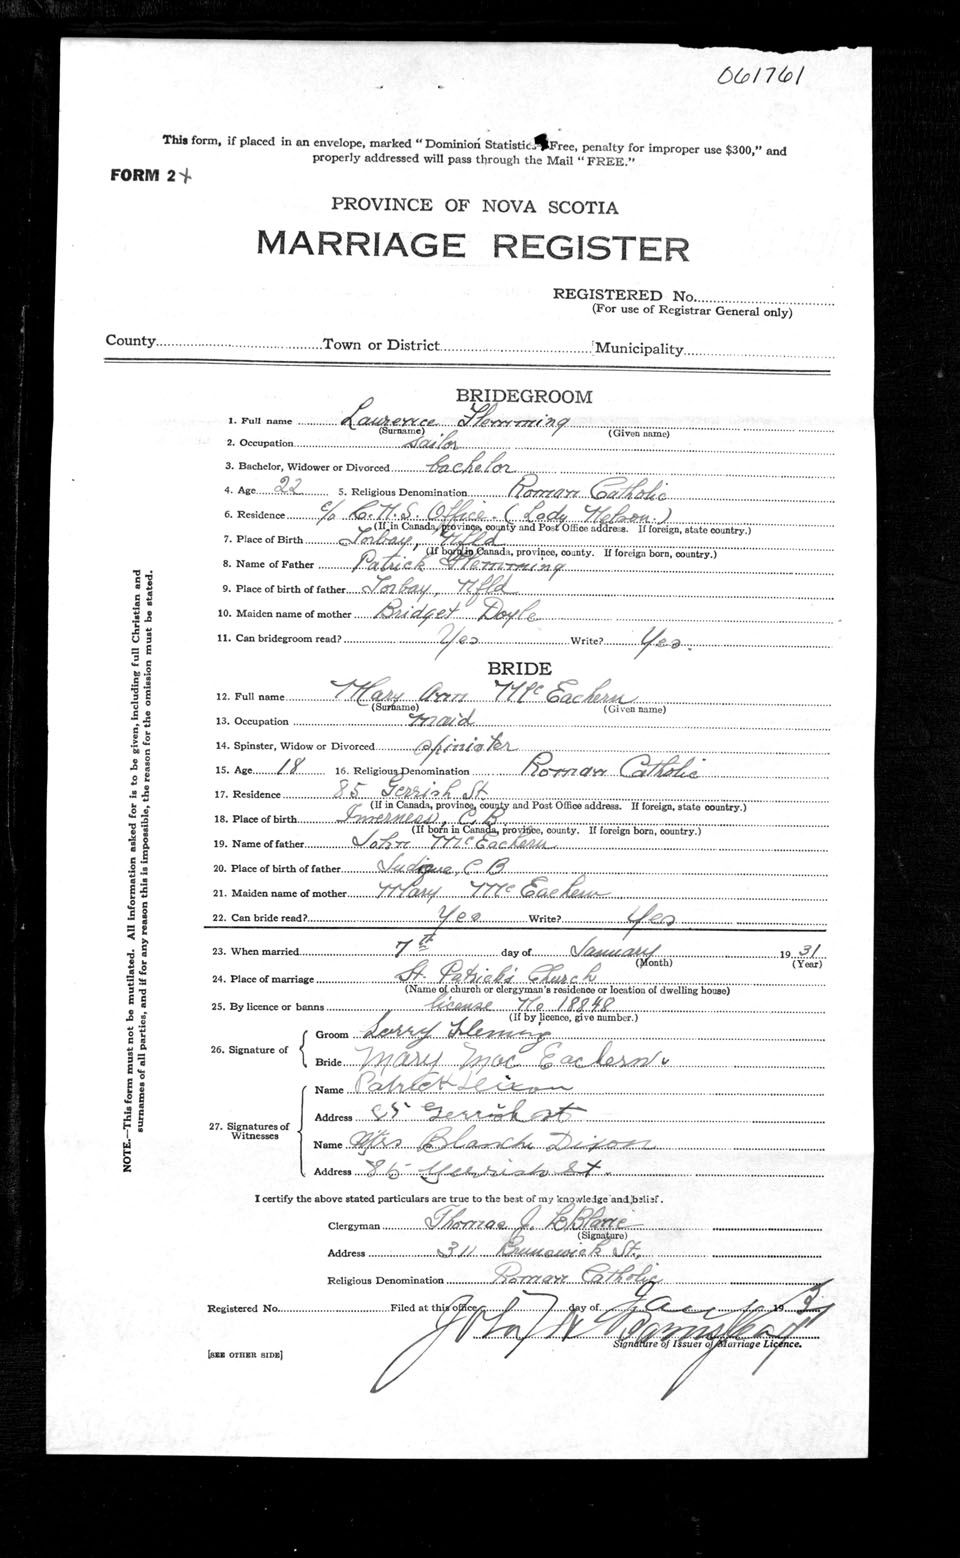 061761
This form, if placed in an envelope, marked "Dominion Statistics Free, penalty for improper use $300," and
properly addressed will pass through the Mail "FREE."
FORM 2
PROVINCE OF NOVA SCOTIA
MARRIAGE REGISTER
REGISTERED No.
(For use of Registrar General only)
County Town or District Municipality
BRIDEGROOM
1. Full name Laurence Flemming
(Surname) (Given name)
2. Occupation sailor
3. Bachelor, Widower or Divorced bachelor
4. Age 22 5. Religious Denomination Roman Catholic
6. Residence c/o C.N.S. Office. (Lady Nelson.)
(If in Canada, province, county and Post Office address. If foreign, state country.)
7. Place of Birth Torbay, Nfld
(If born in Canada, province, county. If foreign born, country.)
8. Name of Father Patrick Flemming
9. Place of birth of father Torbay, Nfld
10. Maiden name of mother Bridget Doyle
11. Can bridegroom read? Yes Write? Yes.
BRIDE
12. Full name Mary Ann McEachern
(Surname) (Given name)
13. Occupation maid
14. Spinster, Widow or Divorced spinster
15. Age 18 16. Religious Denomination Roman Catholic
17. Residence 85 Gerrish St.
(If in Canada, province, county and Post Office address. If foreign, state country.)
18. Place of birth Inverness, C.B.
(If born in Canada, province, county. If foreign born, country.)
19. Name of father John McEachern
20. Place of birth of father Judique, C B
21. Maiden name of mother Mary McEachern
22. Can bride read? Yes Write? Yes
23. When married 7th day of January 1931
(Month) (Year)
24. Place of marriage St. Patrick's Church
(Name of church or clergyman's residence or location of dwelling house)
25. By licence or banns license No 18848
(If by licence, give number.)
26. Signature of
Groom Larry Fleming
Bride Mary Mac Eachern
27. Signatures of Witnesses
Name Patrick Dixon
Address 85 Gerrish St
Name Mrs Blanche Dixon
Address 85 Gerrish St.
I certify the above stated particulars are true to the best of my knowledge and belief.
Clergyman Thomas J. LeBlanc
(Signature)
Address 311 Brunswick St.,
Religious Denomination Roman Catholic
Registered No. Filed at this office day of Jan 1931
Signature of Issuer of Marriage Licence.
[SEE OTHER SIDE]
NOTE.—This form must not be mutilated. All information asked for is to be given, including full Christian and
surnames of all parties, and if for any reason this is impossible, the reason for the omission must be stated.